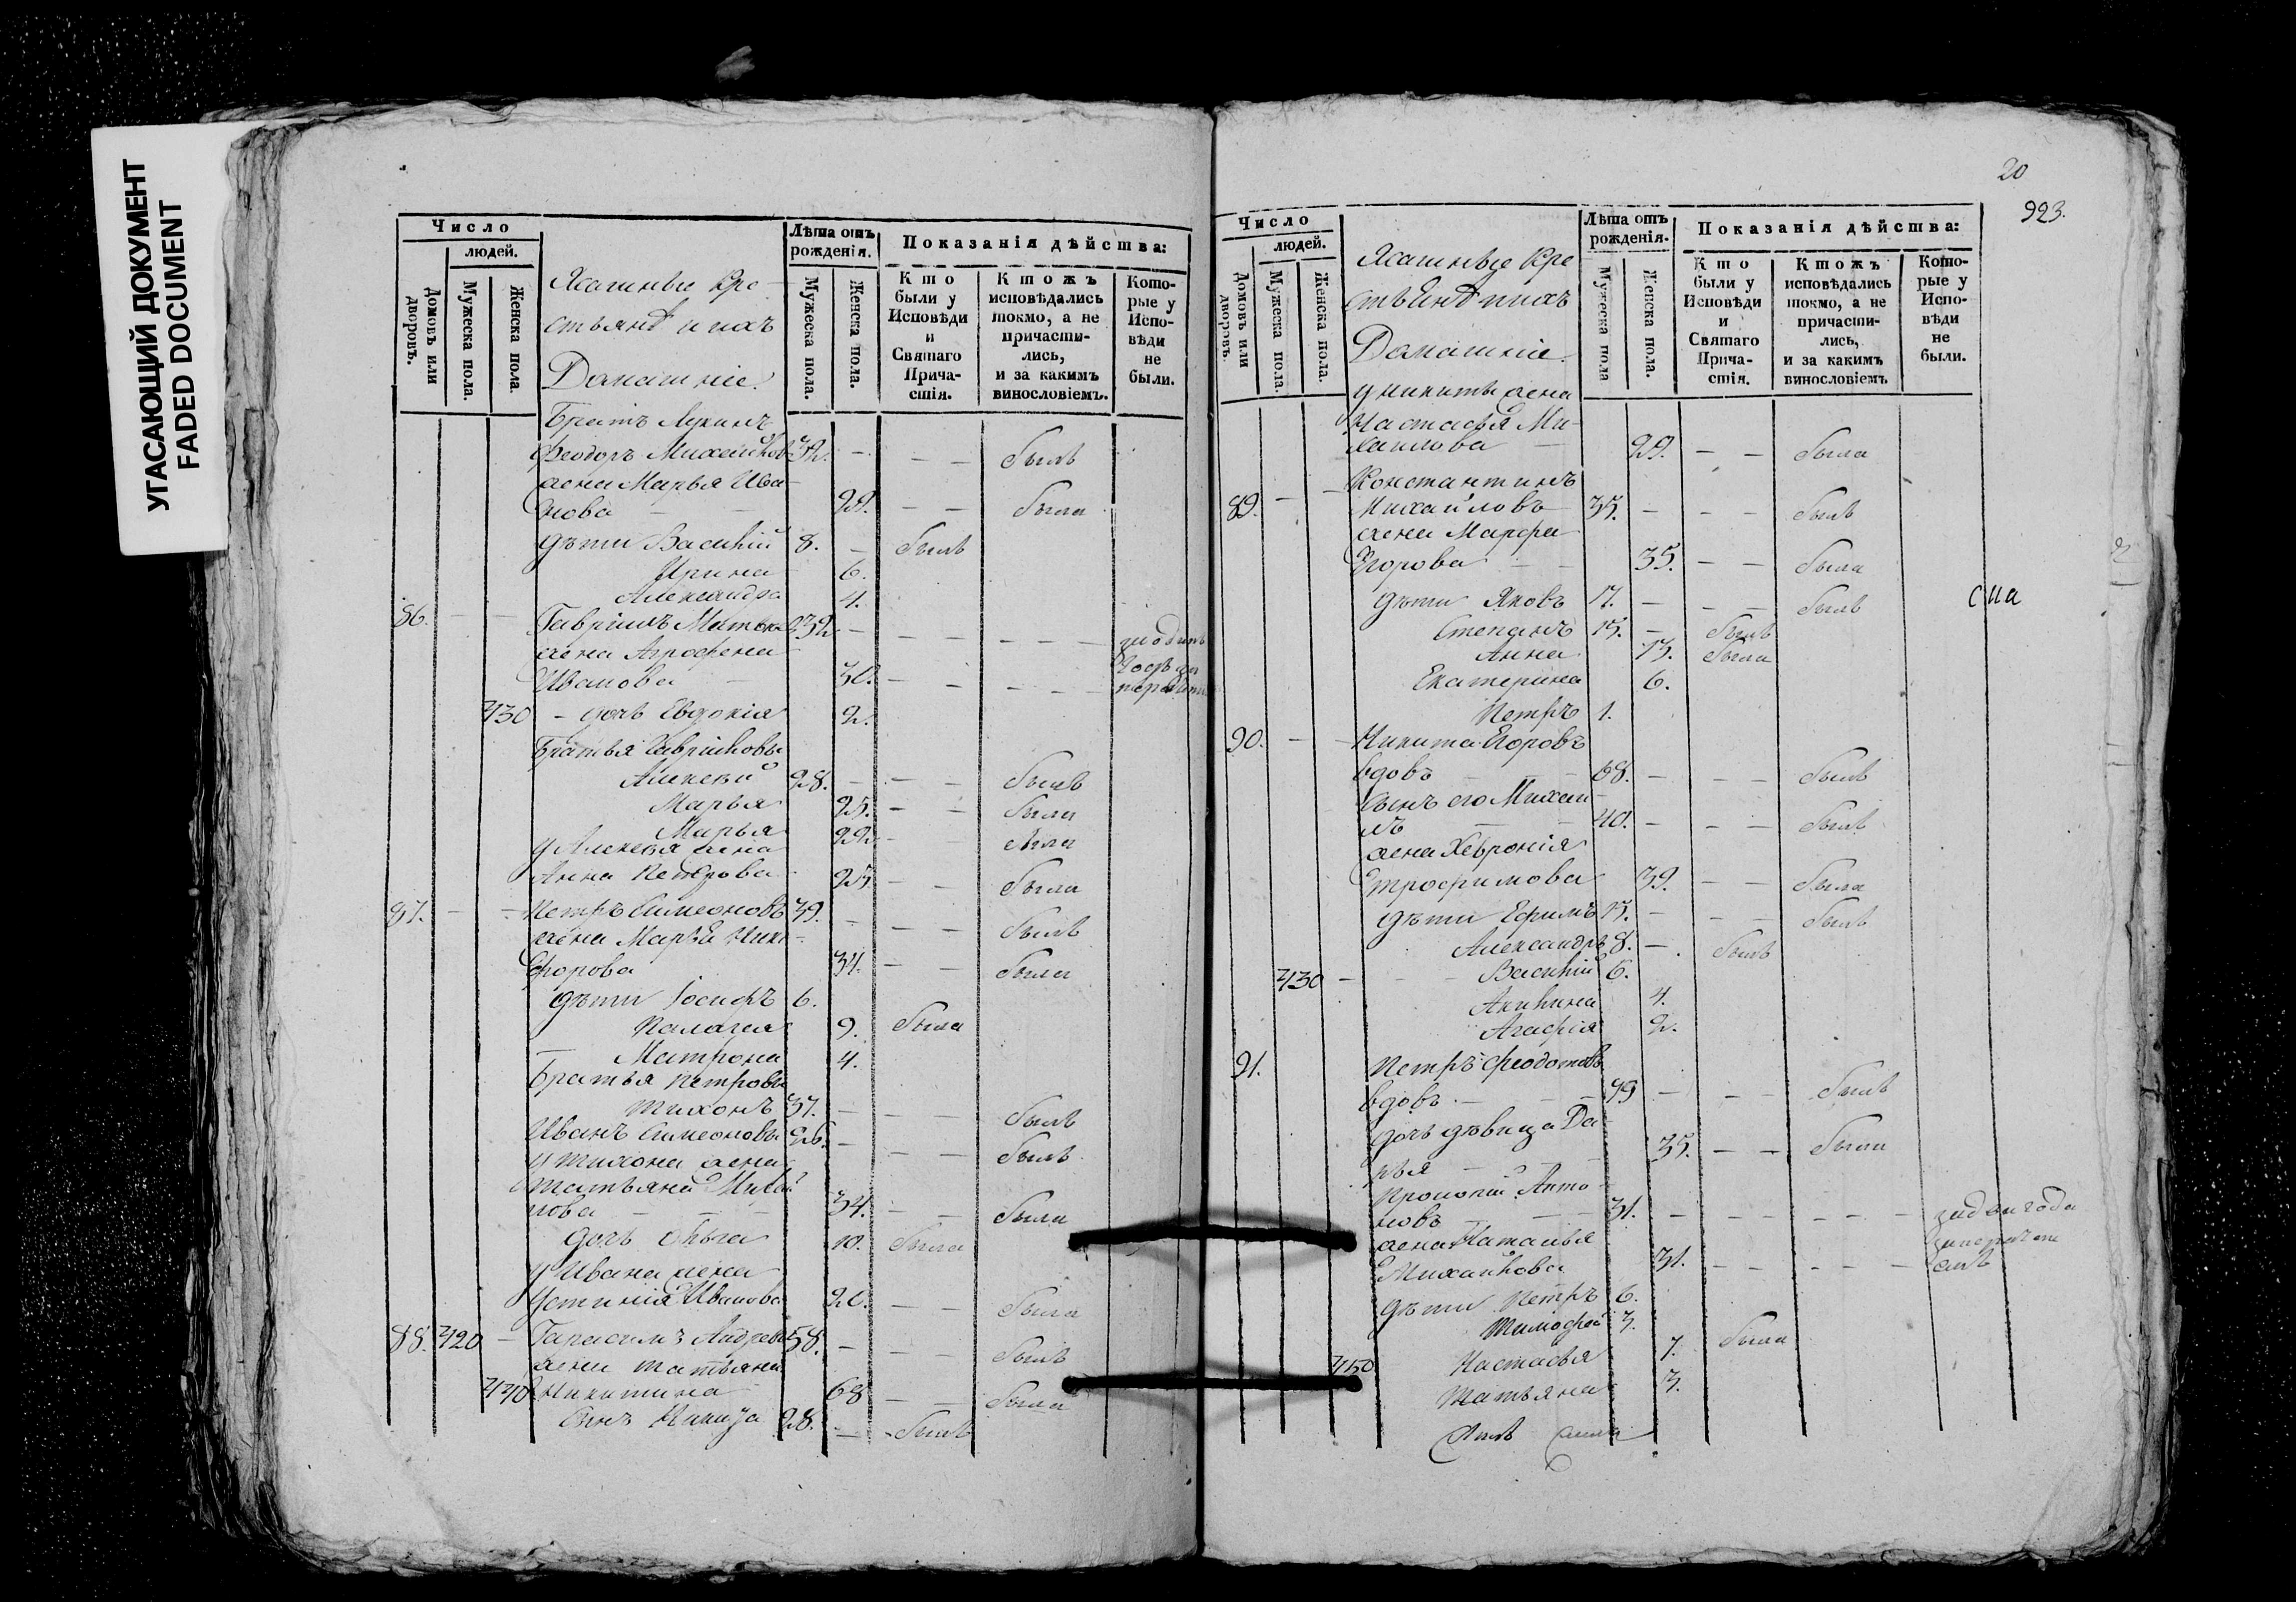 УГАСАЮЩИЙ ДОКУМЕНТ
FADED DOCUMENT
Число
людей.
Домовъ или дворовъ.
Мужеска пола.
Женска пола.
Ясашные кре-
стьянѣ и ихъ
Домашніе.
Лѣта отъ рожденія.
Мужеска пола.
Женска пола.
Показанія дѣйства:
Кто были у Исповѣди и Святаго Прича-стія.
Ктожъ исповѣдались токмо, а не причасти-лись, и за какимъ винословіемъ.
Кото-рые у Испо-вѣди не были.
Братъ
Феодоръ Михайлов 32. — — — былъ
жена Марья Ива-
нова — — 29. — — была
дѣти Василій 8. — былъ
Ирина 6.
Александра 4.
86. — — Гаврилъ 32. — — — — — —
жена Агрофена
Иванова — 30. — — — — —
430 — дочь Евдокія 2.
Братья Гавриловы
Алексѣй 28. — — — былъ
Марья 25. — — была
Марья 22. — — была
у Алексѣя жена
Анна Петрова 25. — — была
87. — — Петръ Симеоновъ 39. — — — былъ
жена Марѳа Ники-
форова 34. — — была
дѣти Іосифъ 6.
Палагея 9. была
Матрона 4.
Братья Петровы
Тихонъ 37. — — — былъ
Иванъ Симеоновы 26. — — — былъ
у Тихона жена
Татьяна
лова — — — 34. — — была
дочь Ольга 10. была
у Ивана жена
Устинія Иванова 20. — — была
88. 420 — Гарасимъ Андреев 58. — — — былъ
жена Татьяна
440 Никитина 68 — — была
Сынъ Никита 28. — — былъ
20
923.
Число
людей.
Домовъ или дворовъ.
Мужеска пола.
Женска пола.
Ясашные кре
стьянѣ и ихъ
Домашніе.
Лѣта отъ рожденія.
Мужеска пола
Женска пола.
Показанія дѣйства:
Кто были у Исповѣди и Святаго Прича-стія.
Ктожъ исповѣдались токмо, а не причасти-лись, и за какимъ винословіемъ
Кото-рые у Испо-вѣди не были.
у Никиты жена
Настасья Ми-
хаилова — 29. — — была
Константинъ
89. — — Михайловъ 35. — — — былъ
жена Марфа
Егорова — — 35. — — была
дѣти Яковъ 17. — — — былъ
Степанъ 15. — былъ
Анна 13. была
Екатерина 6.
Петръ 1.
90. — — Никита Егоровъ
вдовъ — — 68. — — — былъ
сынъ его Михаи
лъ — — 40. — — — былъ
жена Хевронія
Трофимова 39. — — была
дѣти Ефимъ 15. — — — былъ
Александръ 8. — былъ
430 — — Василій 6.
Акилина 4.
Агафія 2.
91. Петръ Феодотовъ
вдовъ — — — 79 — — — былъ
дочь дѣвица Да
рья — — — 35. — — была
Прокопій Анто
новъ — — 31. — — — — — —
жена Наталья
Михайлова 31. — — — — —
дѣти Петръ 6.
Тимофей 3.
450 Настасья 7. была
Татьяна 3.